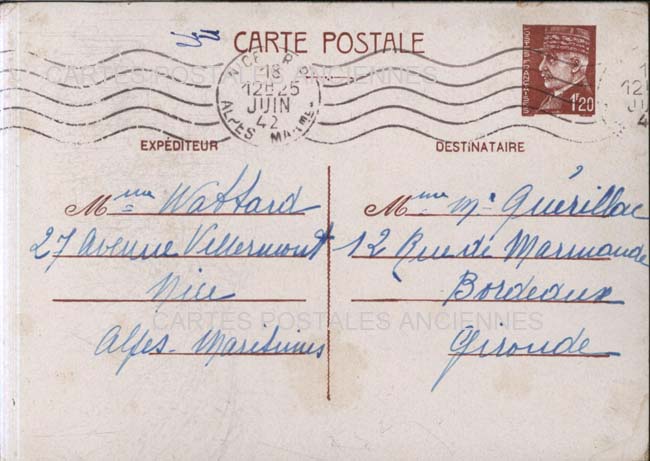 CARTE POSTALE
NICE R.P.
18
12H25
JUIN
42
ALPES MARMES
1F20
EXPÉDITEUR
Mme Wattard
27 Avenue Villermont
Nice
Alpes-Maritimes
DESTINATAIRE
Mme Mce Guérillac
12 Rue de Marmande
Bordeaux
Gironde
CARTES POSTALES ANCIENNES
CARTES POSTALES ANCIENNES